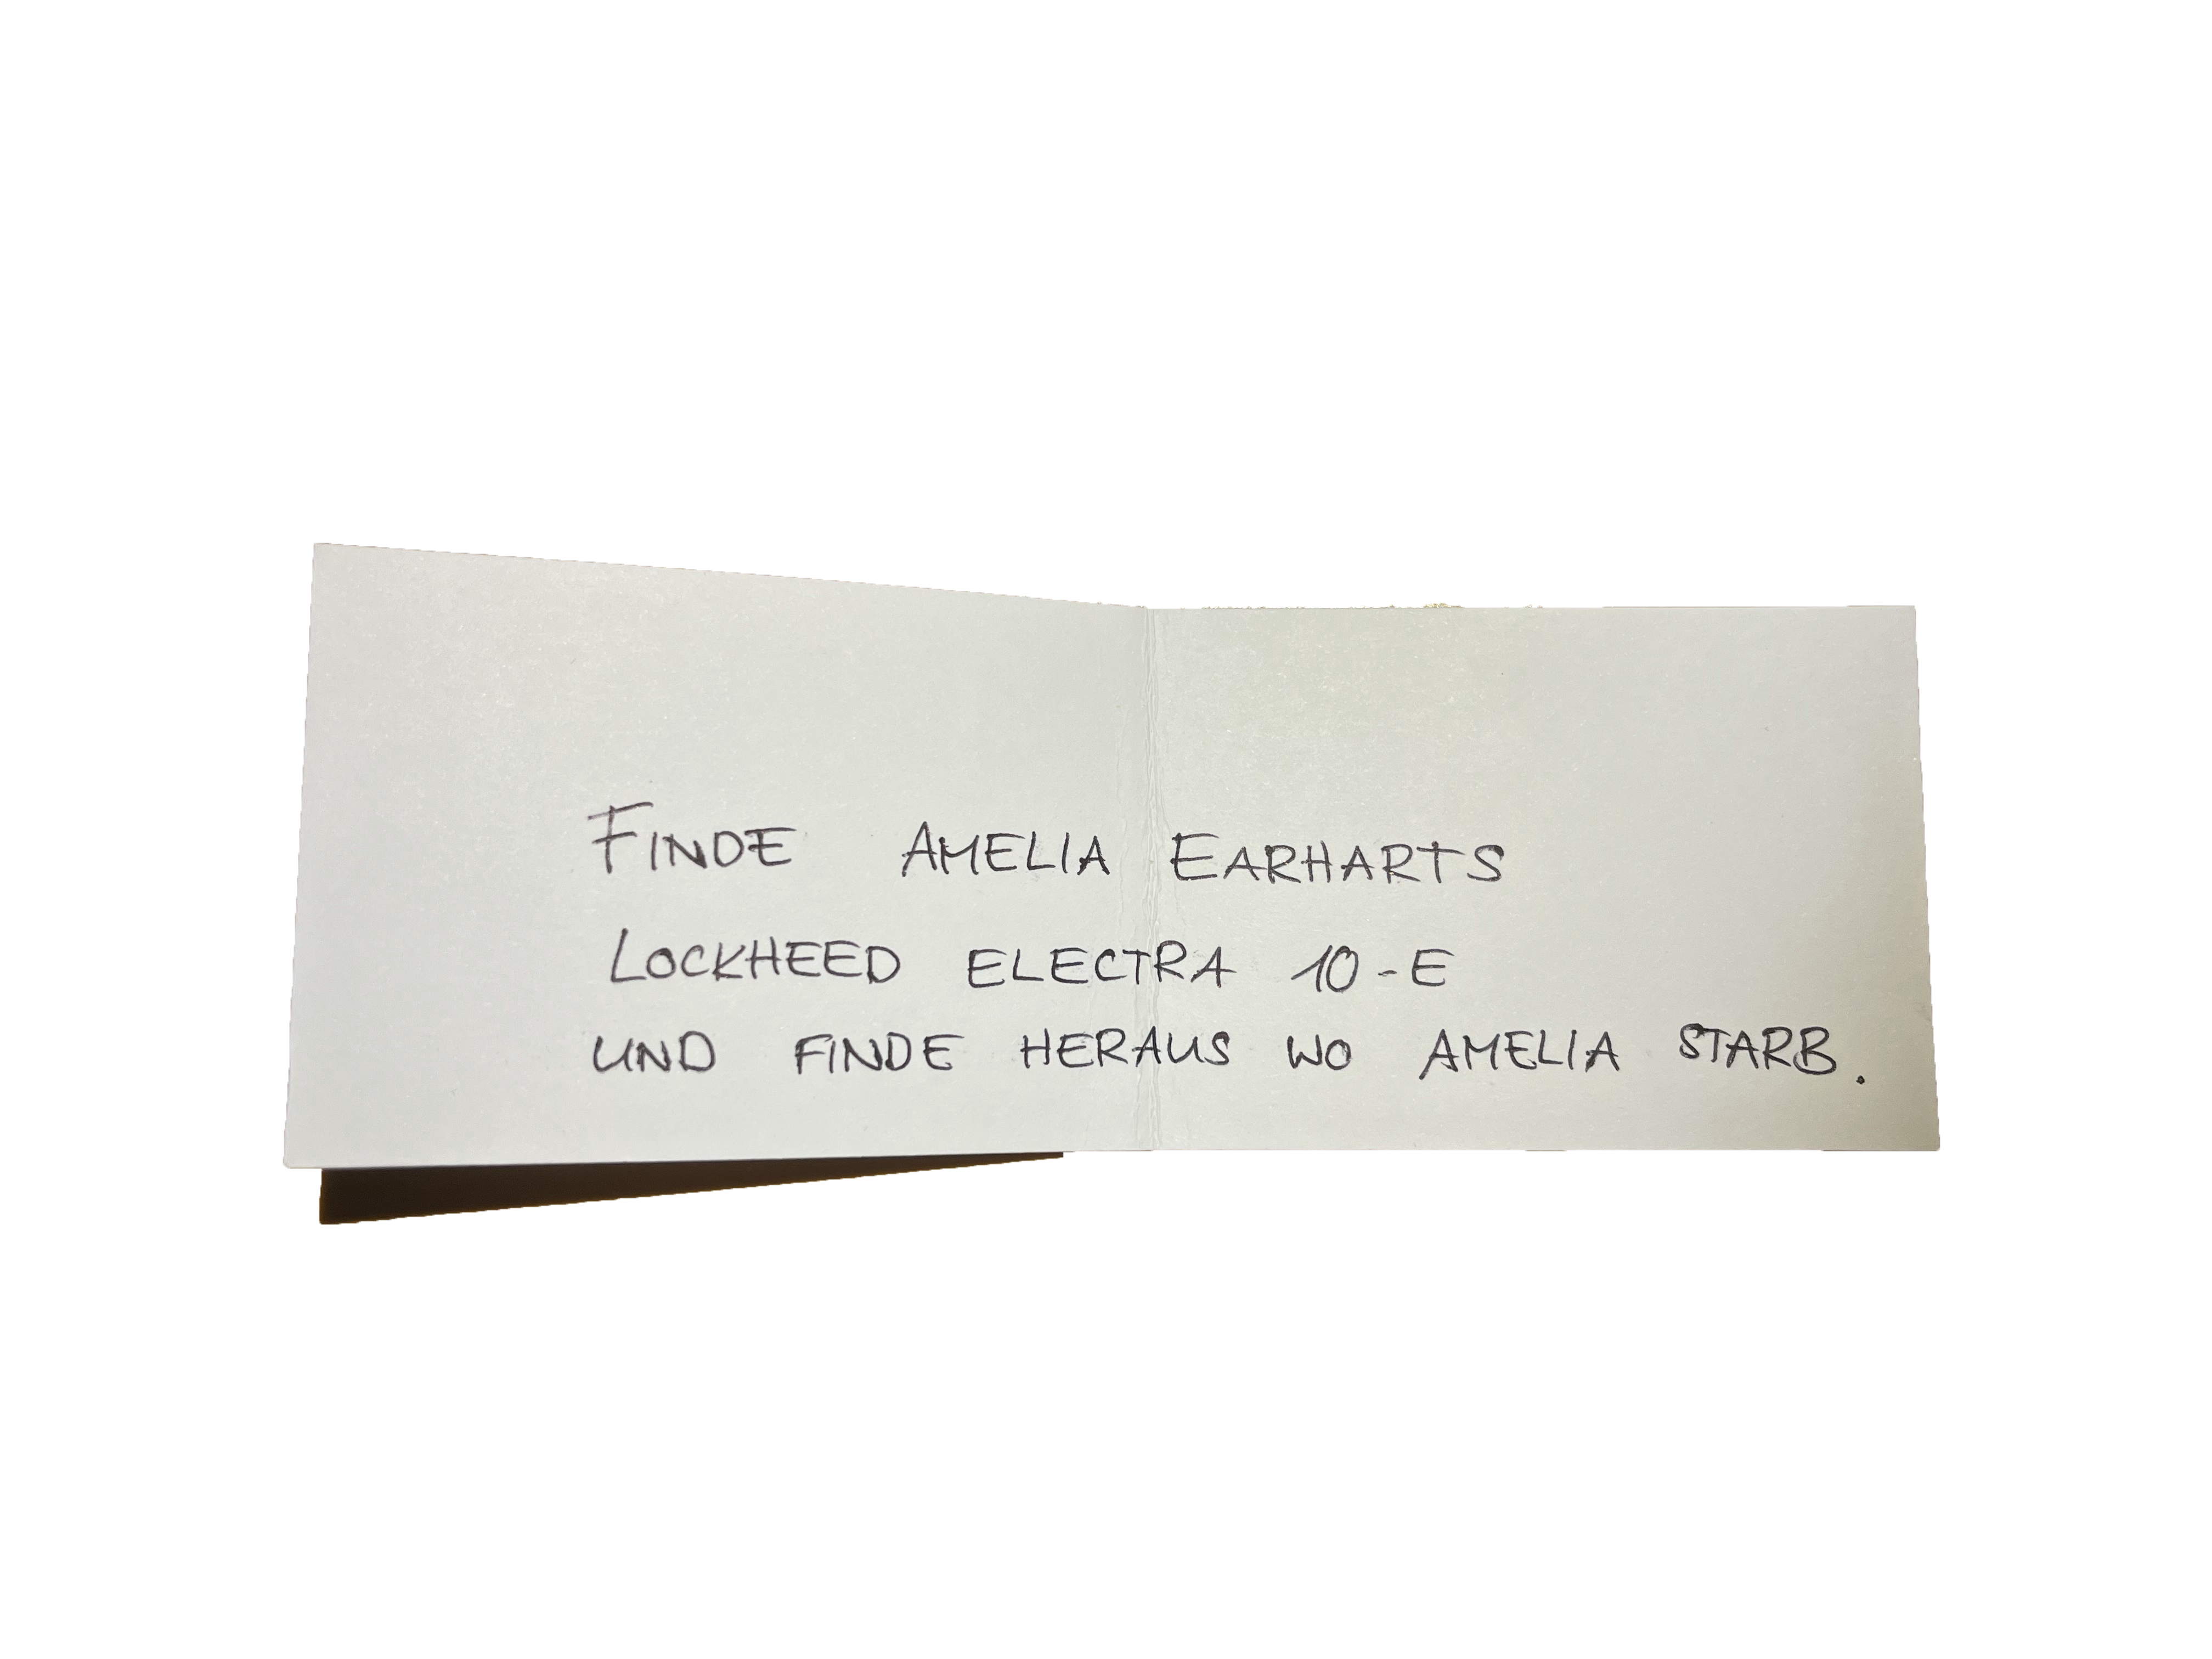 FINDE AMELIA EARHARTS
LOCKHEED ELECTRA 10-E
UND FINDE HERAUS WO AMELIA STARB.